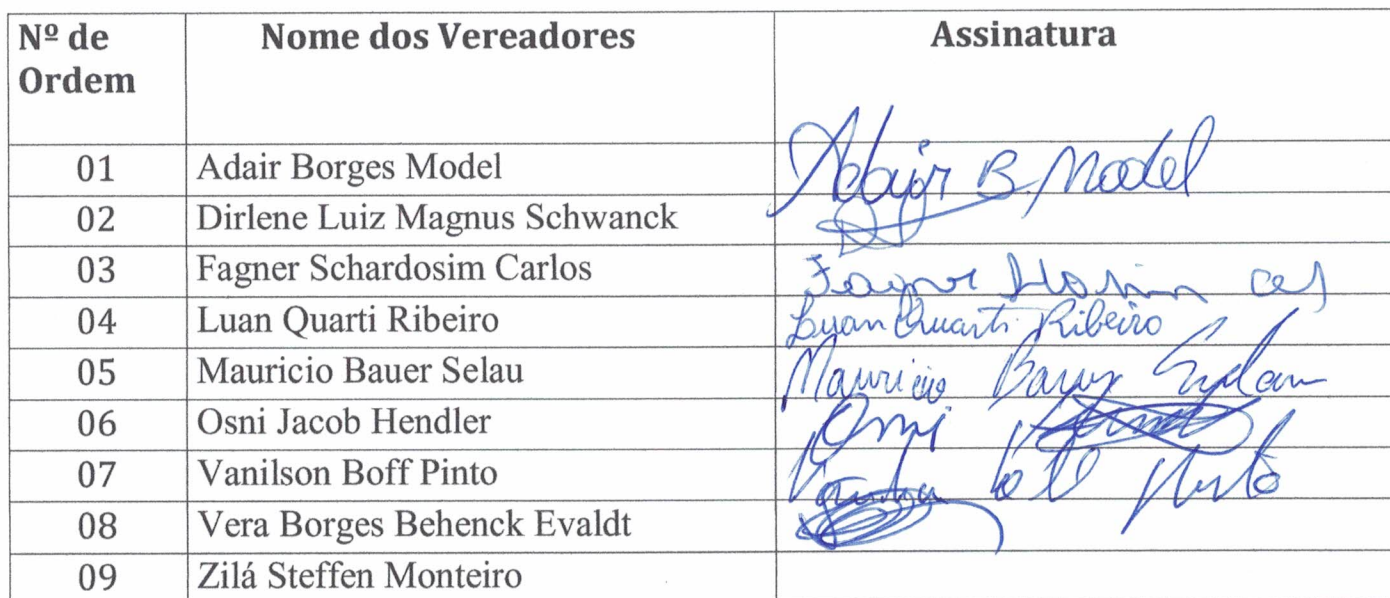 Nº de Ordem Nome dos Vereadores Assinatura
01 Adair Borges Model Adair B. Model
02 Dirlene Luiz Magnus Schwanck
03 Fagner Schardosim Carlos Fagner
04 Luan Quarti Ribeiro Luan Quarti Ribeiro
05 Mauricio Bauer Selau Mauricio Bauer Selau
06 Osni Jacob Hendler Osni
07 Vanilson Boff Pinto Pinto
08 Vera Borges Behenck Evaldt
09 Zilá Steffen Monteiro